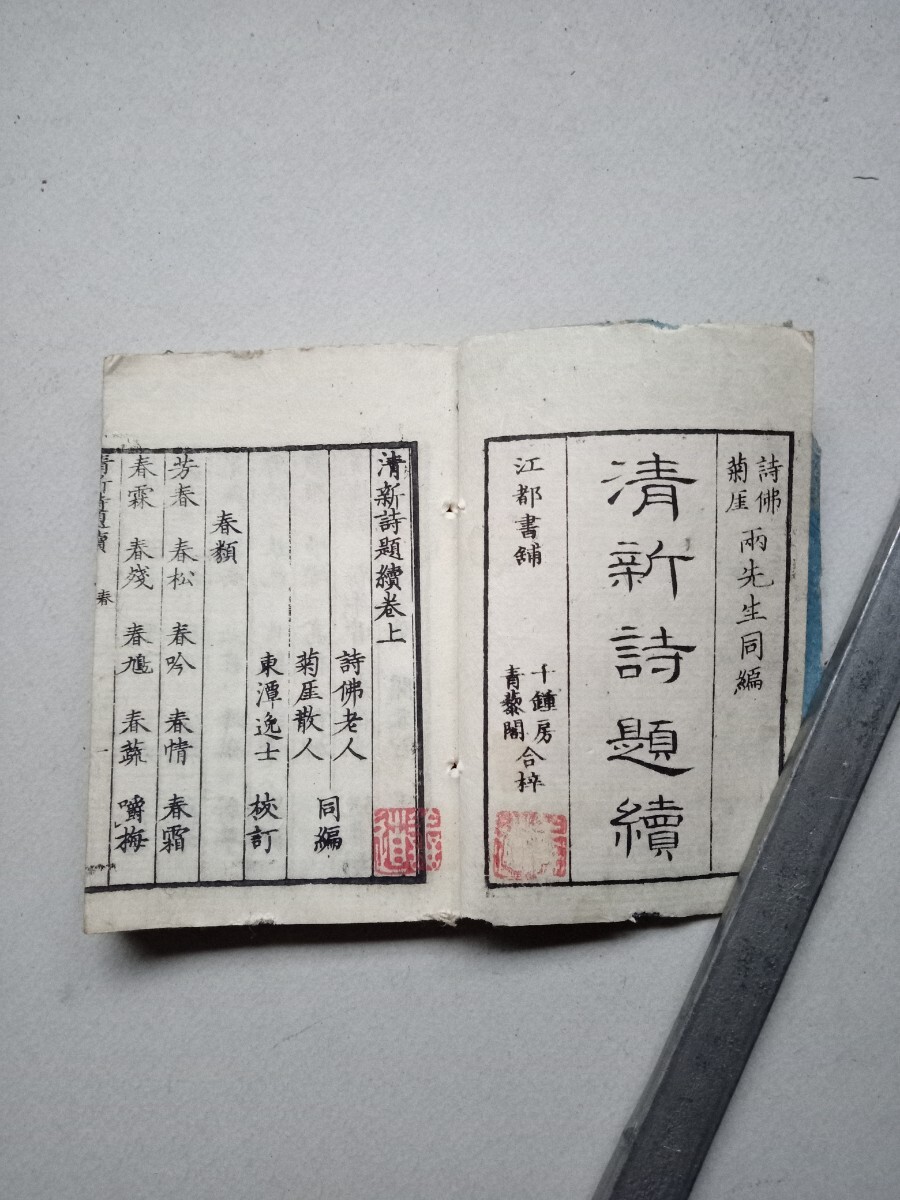 詩佛
菊厓
兩先生同編
清新詩題續
江都書舗
千鍾房
青藜閣
合梓
清新詩題續卷上
詩佛老人
菊厓散人
同編
東潭逸士 校訂
春類
芳春 春松 春吟 春情 春霜
春霖 春殘 春風 春蔬 嚼梅
清新詩題續 春 一